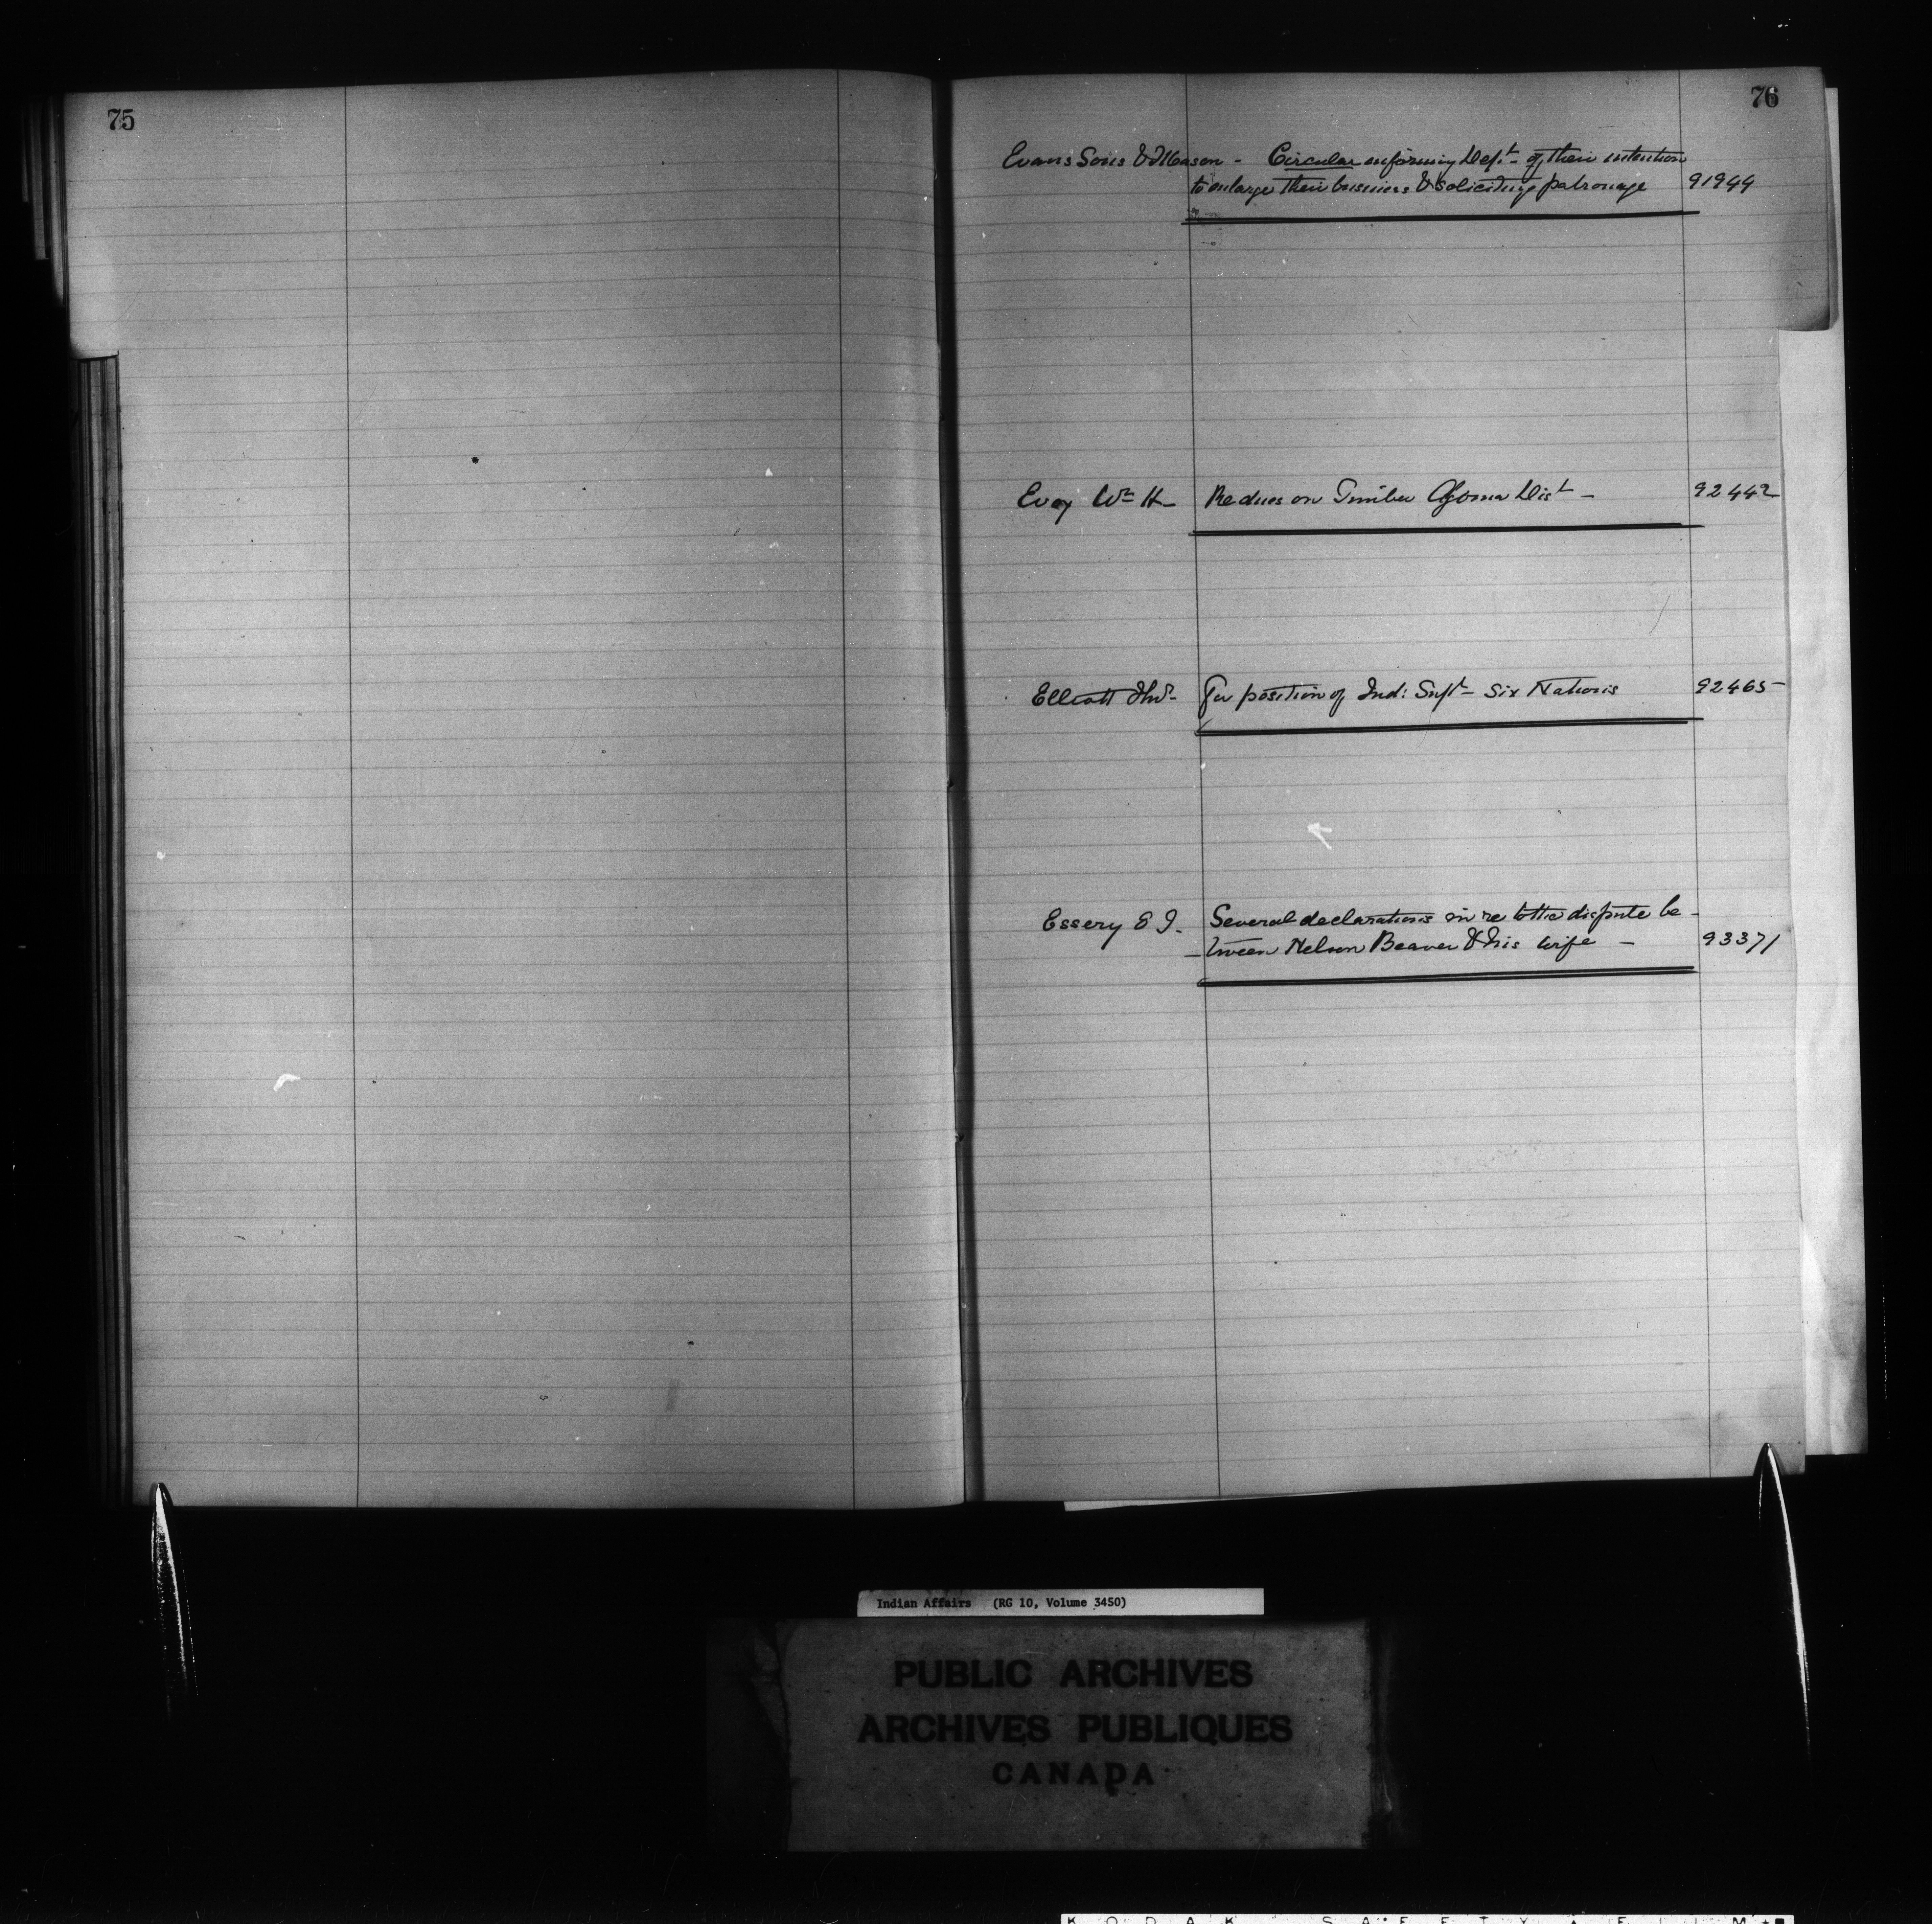 75
76
Evans Sons & Mason - Circular informing Dept. of their intention
to enlarge their business & soliciting patronage 91944
Evoy Wm H - Re dues on Timber Algoma Dist - 92442
Elliott - For position of Ind: Supt - Six Nations 92465
Essery E J. Several declarations in re to the dispute be-
-tween Nelson Beaver & his wife - 93371
Indian Affairs (RG 10, Volume 3450)
PUBLIC ARCHIVES
ARCHIVES PUBLIQUES
CANADA
KODAK SAFETY FILM